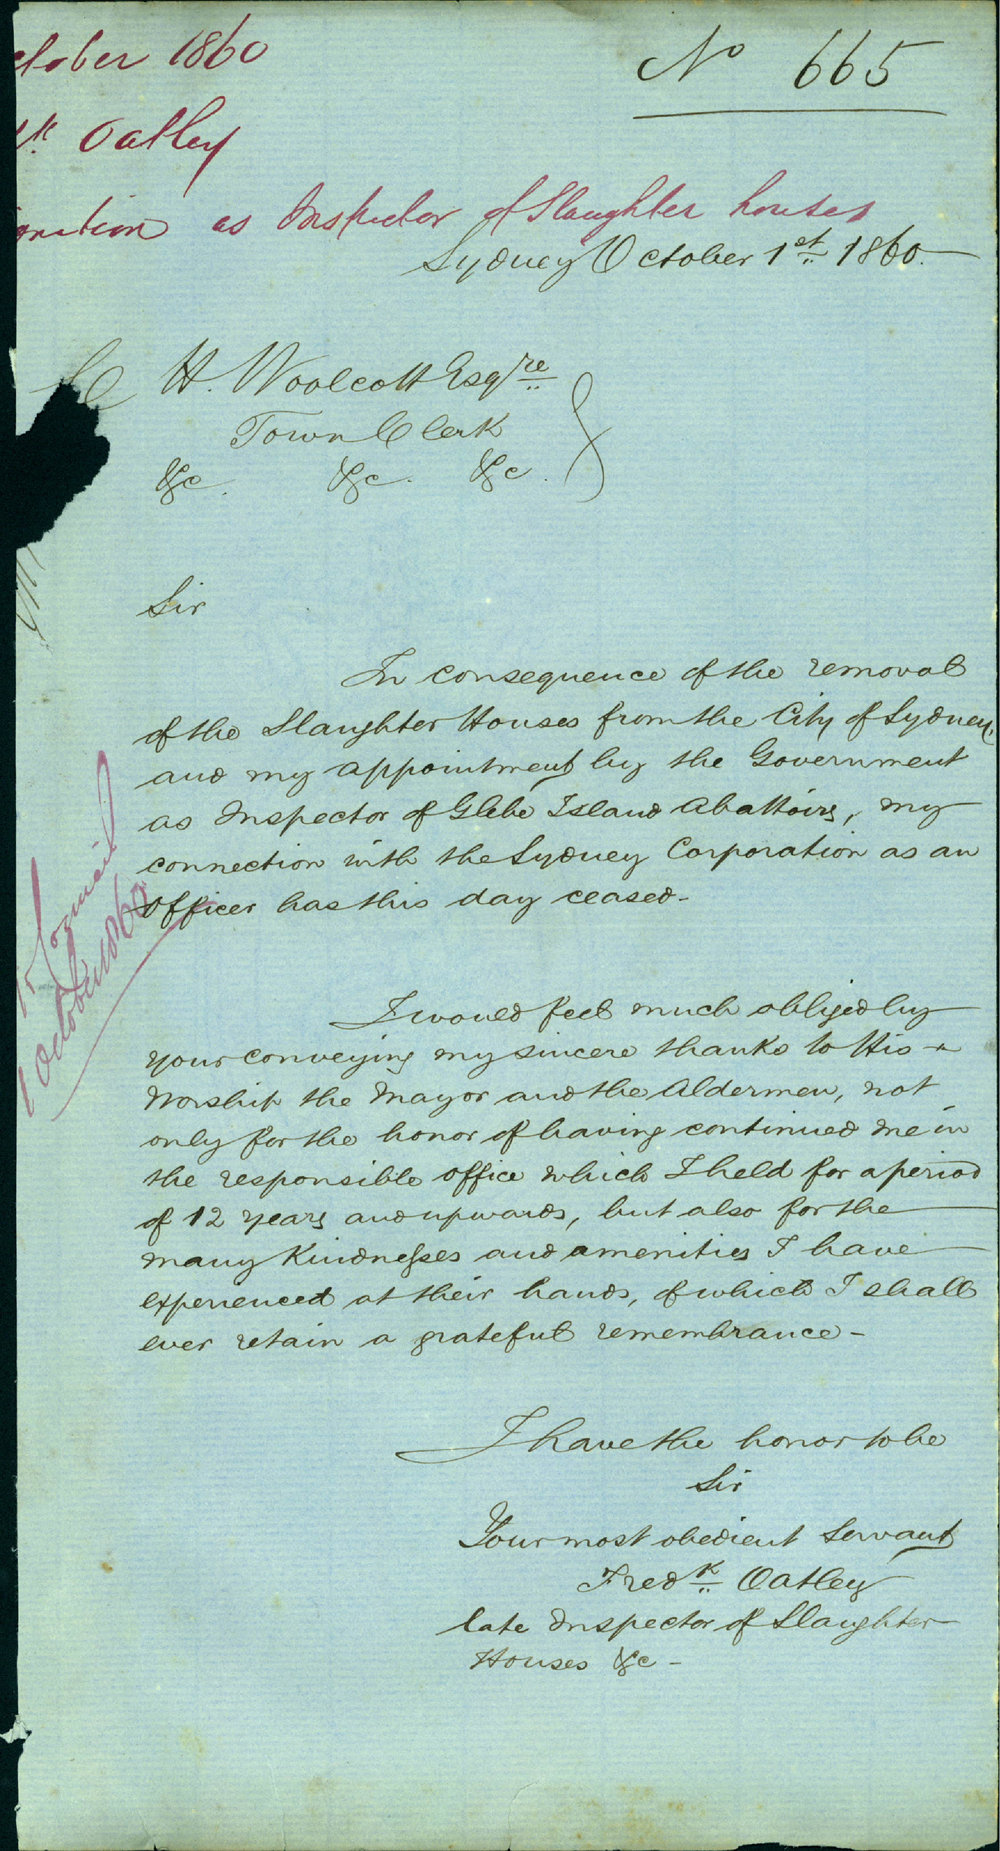 ctober 1860
No 665
dk Oatley
ignation as Inspector of Slaughter houses
Sydney October 1st 1860.
C H. Woolcott Esqre
Town Clerk
&c. &c. &c.
Sir
In consequence of the removal
of the Slaughter Houses from the City of Sydney,
and my appointment by the Government
as Inspector of Glebe Island Abattoirs, my
connection with the Sydney Corporation as an
Officer has this day ceased-
Council
1 October 1860
I would feel much obliged by
your conveying my sincere thanks to His
Worship the Mayor and the Aldermen, not
only for the honor of having continued me in
the responsible office which I held for a period
of 12 years and upwards, but also for the
many Kindnesses and amenities I have
experienced at their hands, of which I shall
ever retain a grateful remembrance-
I have the honor to be
Sir
Your most obedient Servant
Fredk Oatley
late Inspector of Slaughter
Houses &c-